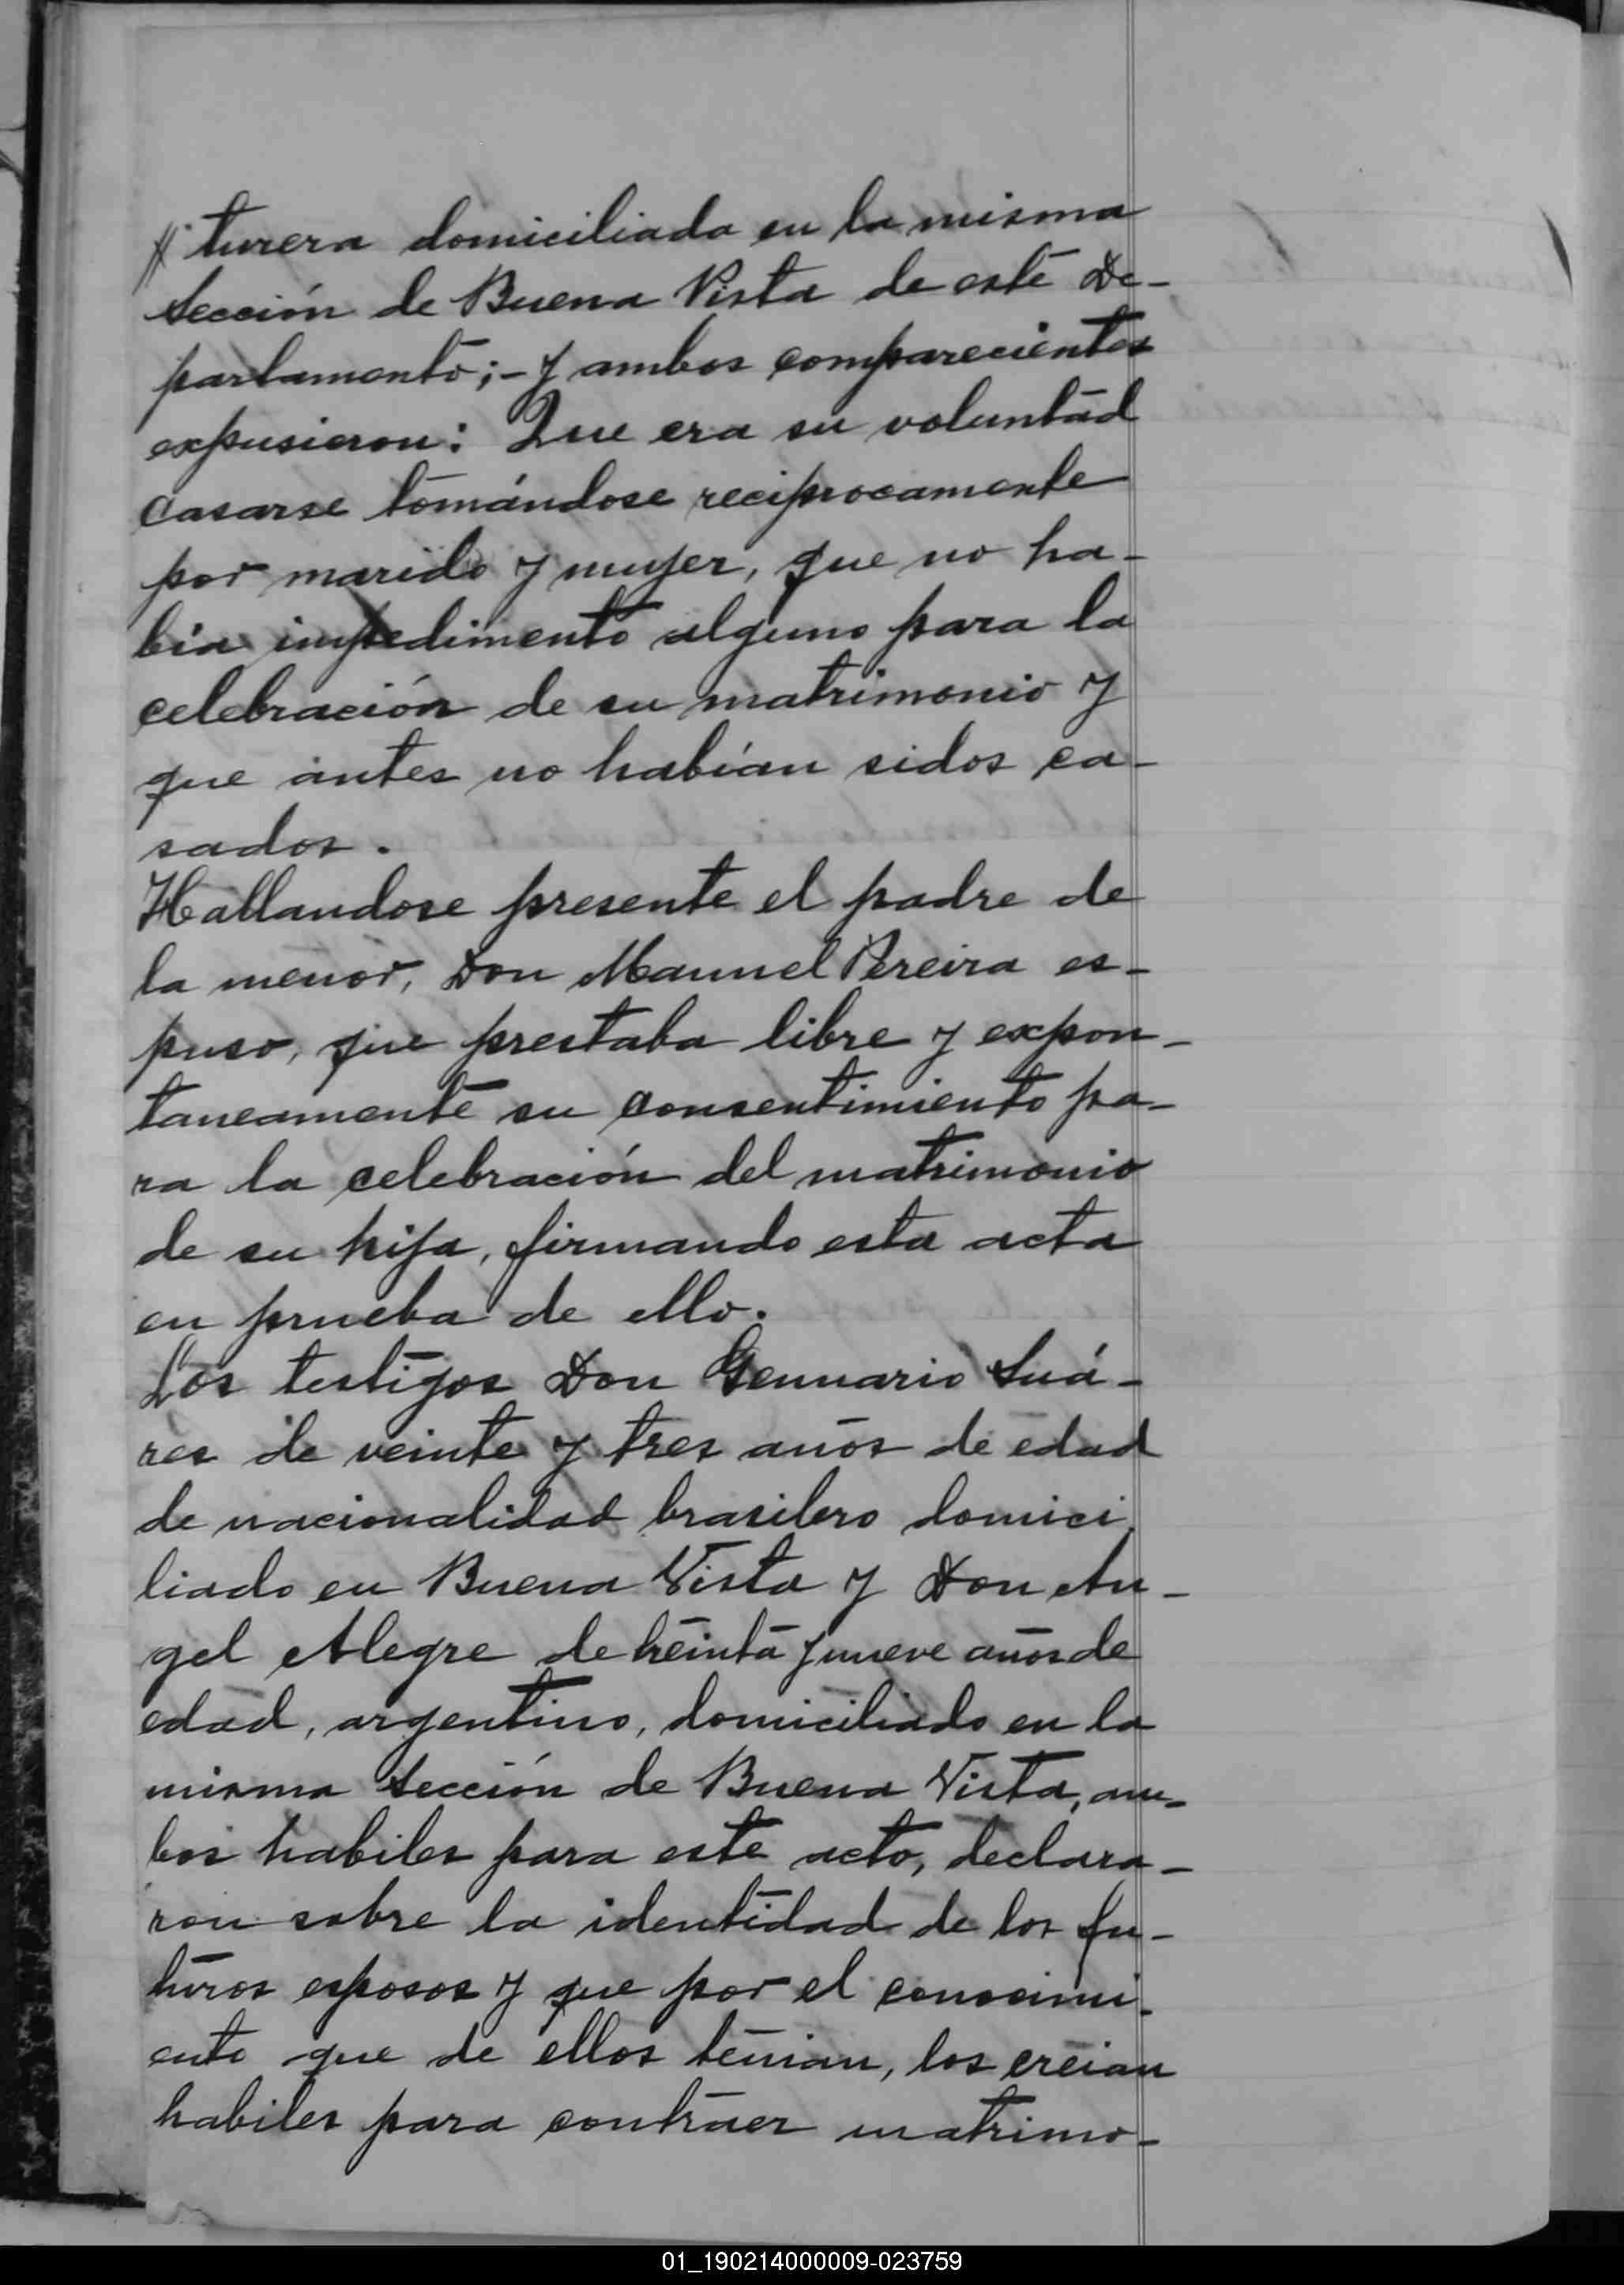 turera domiciliada en la misma
Sección de Buena Vista de este De-
partamento;- y ambos comparecientes
expusieron: Que era su voluntad
casarse tomándose reciprocamente
por marido y mujer, que no ha-
bia impedimento alguno para la
celebración de su matrimonio y
que antes no habían sidos ca-
sados.
Hallandose presente el padre de
la menor, Don Manuel Pereira es-
puso, que prestaba libre y expon-
taneamente su consentimiento pa-
ra la celebración del matrimonio
de su hija, firmando esta acta
en prueba de ello.
Los testigos Don Gennario Suá-
res de veinte y tres años de edad
de nacionalidad brasilero domici
liado en Buena Vista y Don An-
gel Alegre de treinta y nueve años de
edad, argentino, domiciliado en la
misma Sección de Buena Vista, am-
bos habiles para este acto, declara-
ron sobre la identidad de los fu-
turos esposos y que por el conocimi-
ento que de ellos tenian, los creian
habiles para contraer matrimo-
01_190214000009-023759